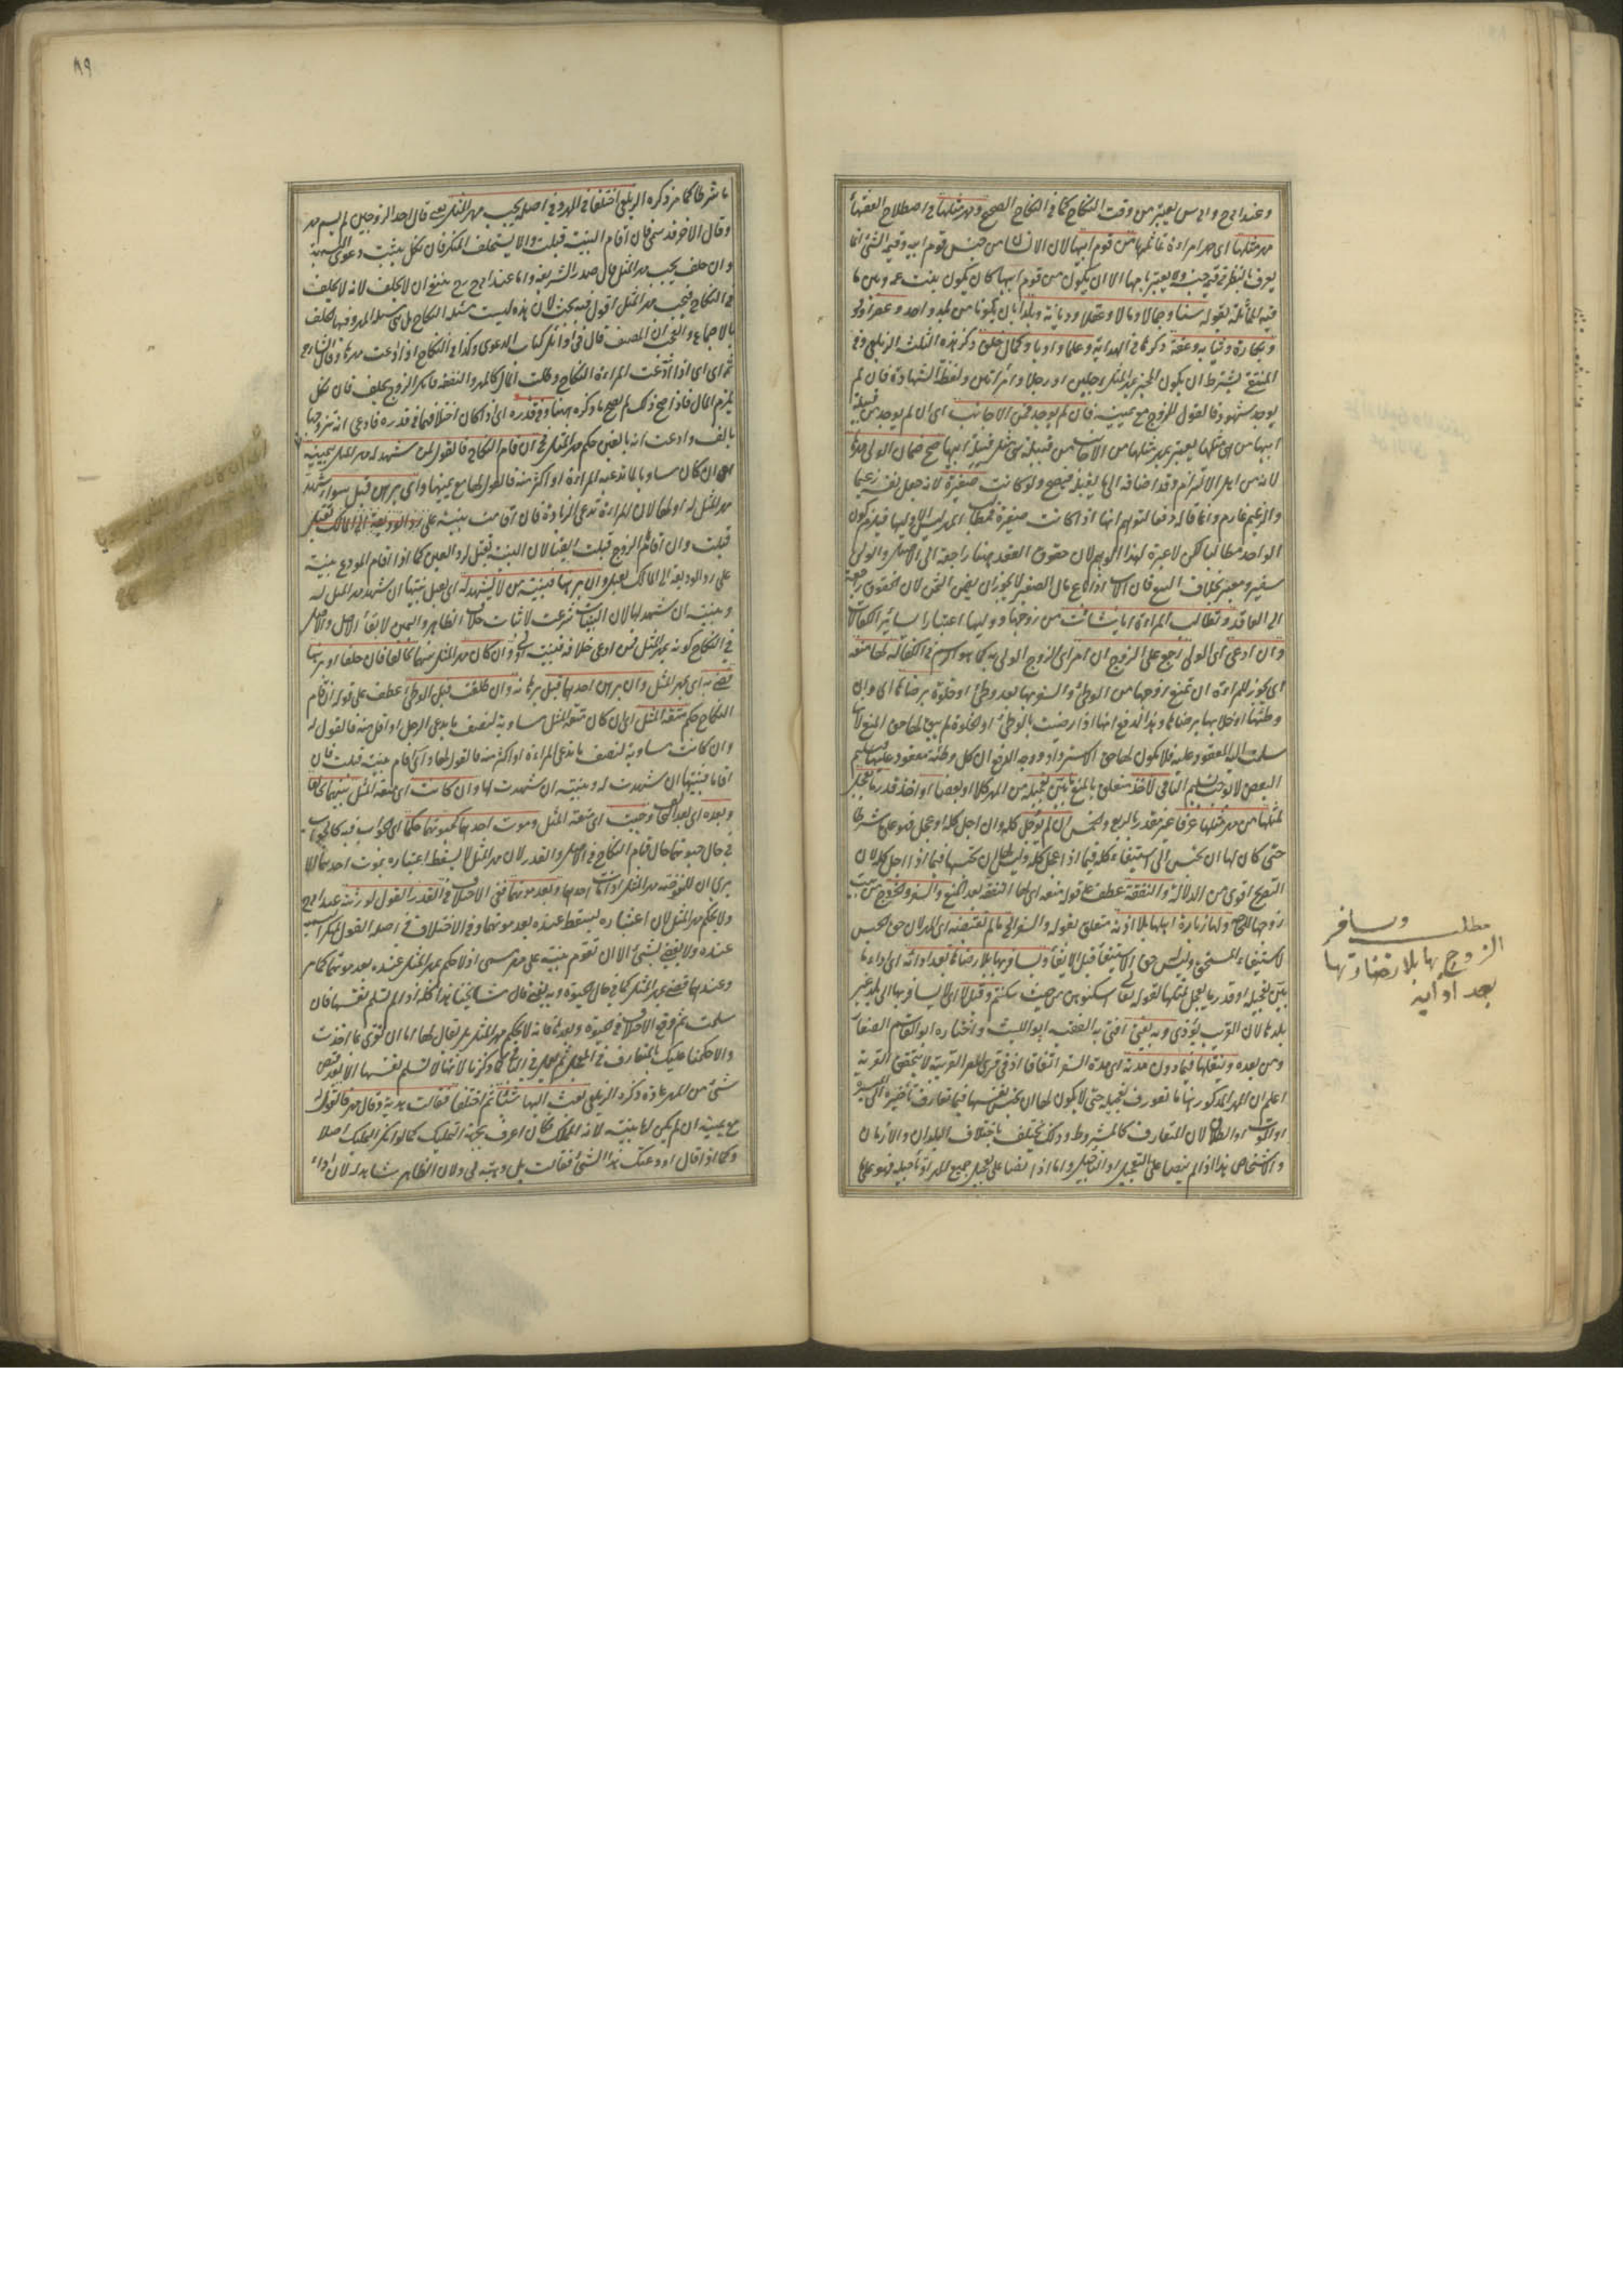 وعند ابى ح وابى س يعتبر من وقت النكاح كما فى النكاح الصحيح ومهر مثلها فى اصطلاح الفقهاء
مهر مثلها اى مهر امراة تماثلها من قوم ابيها لان الانسان من جنس قوم ابيه وقيمة الشئ انما
يعرف بالنظر فى قيمة جنسه ولا يعتبر بامها الا ان يكون من قوم ابيها كان يكون بنت عمه وبين ما
فيه المماثلة بقوله سنا وجمالا ومالا وعقلا وديانة وبلدا بان يكونا من بلد واحد وعصرا
وبكارة وثيابة وعفة ذكرها فى الهداية وعلما وادبا وكمال خلق ذكر هذه الثلث الزيلعى وفى
المنتقى يشترط ان يكون المخبر بمهر المثل رجلين او رجلا وامرأتين ولفظة الشهادة فان لم
يوجد شهود فالقول للزوج مع يمينه فان لم يوجد فمن الاجانب اى ان لم يوجد من قبيلة
ابيها من مثلها يعتبر بمهر مثلها من الاجانب من قبيلة هى مثل قبيلة ابيها صح ضمان الولى مهرها
لانه من اهل الالتزام وقد اضافه الى ما يقبله فيصح ولو كانت صغيرة لانه جعل نفسه زعيما
والزعيم غارم وانما قاله دفعا لتوهم انها اذا كانت صغيرة فمطالب المهر ليس الا وليها فيلزم كون
الواحد مطالبا لكن لا عبرة لهذا الوهم لان حقوق العقد ههنا راجعة الى الاصيل والولى
سفير ومعبر بخلاف البيع فان الاب اذا باع مال الصغير لا يجوز ان يضمن الثمن لان الحقوق راجعة
الى العاقد وتطالب المراة ايا شائت من زوجها ووليها اعتبارا بسائر الكفالات
وان ادى اى الولى رجع على الزوج ان امر اى الزوج الولى به كما هو الرسم فى الكفالة لها منعه
اى يجوز للمراة ان تمنع زوجها من الوطئ والسفر بها بعد وطئ او خلوة برضاها اى وان
وطئها او خلا بها برضاها وهذا لدفع انها اذا رضيت بالوطئ او الخلوة لم يبق لها حق المنع لانها
سلمت اليه المعقود عليه فلا يكون لها حق الاسترداد ووجه الدفع ان كل وطئة معقود عليها فتسليم
البعض لا يوجب تسليم الباقى لاخذ متعلق بالمنع ما بين تعجيله من المهر كلا او بعضا او اخذ قدر ما يعجل
لمثلها من مهر مثلها عرفا غير مقدر بالربع والخمس ان لم يؤجل كله وان اجل كله او عجل فهو على ما شرطا
حتى كان لها ان تحبس الى استيفاء كله فيما اذا عجل كله وليس لها ان تحبسها فيما اذا اجل كله لان
التصريح اقوى من الدلالة والنفقة عطف على قوله منعه اى لها النفقة بعد المنع والسفر والخروج من بيت
زوجها للحاجة ولها زيارة اهلها بلا اذنه متعلق بقوله والسفر الى ما لم تقبضه اى المهر لان حق الحبس
لاستيفاء المستحق وليس له حق الاستيفاء قبل الايفاء ويسافر بها بلا رضاها بعد ادائه اى اداء ما
بين تعجيله او قدر ما يعجل لمثلها لقوله تعالى اسكنوهن من حيث سكنتم وقيل لا اى لا يسافر بها الى بلد غير
بلدها لان الغريب يؤذى وبه يفتى افتى به الفقيه ابو الليث واختاره ابو القاسم الصفار
ومن بعده وينقلها فيما دون مدته اى مدة السفر اتفاقا اذ فى قرى المصر القريبة لا يتحقق الغربة
اعلم ان المهر المذكور ههنا ما تعورف تعجيله حتى لا يكون لها ان تحبس نفسها فيما تعارف تاخيره الى الميسرة
او الموت او الطلاق لان المتعارف كالمشروط وذلك يختلف باختلاف البلدان والازمان
والاشخاص هذا اذا لم ينصا على التعجيل او التاجيل واما اذا نصا على تعجيل جميع المهر او تاجيله فهو على
مطلب ويسافر
الزوج بها بلا رضاء زوجها
بعد ادائه
٨٩
ما شرطا كما مر ذكره الزيلعى اختلفا فى المهر فى اصله يجب مهر المثل يعنى قال احد الزوجين لم يسم مهر
وقال الاخر قد سمى فان اقام البينة قبلت والا يستحلف المنكر فان نكل يثبت دعوى التسمية
وان حلف يجب مهر المثل قال صدر الشريعة واما عند ابى ح رح ينبغى ان لا يحلف لانه لا يحلف
فى النكاح فيجب مهر المثل اقول فيه بحث لان هذه ليست مسئلة النكاح بل هى مسئلة المهر وفيها يحلف
بالاجماع والعجب ان المصنف قال فى اوائل كتاب الدعوى وكذا فى النكاح اذا ادعت مهرها وقال الشارح
ثمه اى اى اذا ادعت المراة النكاح وطلبت المال كالمهر والنفقة فانكر الزوج يحلف فان نكل
يلزم المال فاذا صح ذلك لم يصح ما ذكره ههنا وفى قدره اى اذا كان اختلافهما فى قدره فادعى انه تزوجها
بالف وادعت انه بالفين حكم مهر المثل فى ان قام النكاح فالقول لمن شهد له مهر المثل بيمينه
اى ان كان مساويا لما تدعيه المراة او اكثر منه فالقول لها مع يمينها واى برهن قبل سواء شهد
مهر المثل له او لها لان المراة تدعى الزيادة فان اقامت بينة على رد الوديعة الى المالك تقبل
قبلت وان اقامها الزوج قبلت ايضا لان البينة تقبل لرد اليمين كما اذا اقام المودع بينة
على رد الوديعة الى المالك تقبل وان برهنا فبينة من لا يشهد له اى تقبل بينتها ان شهد مهر المثل له
وبينته ان شهد لها لان البينات شرعت لاثبات خلاف الظاهر واليمين لابقاء الاصل والاصل
فى النكاح كونه بمهر المثل فمن ادعى خلافه فبينته اولى وان كان مهر المثل بينهما تحالفا فان حلفا او برهنا
قضى به اى بمهر المثل وان برهن احدهما قبل برهانه وان طلقت قبل الوطئ عطف على قوله ان قام
النكاح حكم متعة المثل اى ان كان متعة المثل مساوية لنصف ما يدعى الرجل او اقل منه فالقول له
وان كانت مساوية لنصف ما تدعى المراة او اكثر منه فالقول لها واى اقام بينة قبلت فان
اقاما فبينتها ان شهدت له وبينته ان شهدت لها وان كانت اى متعة المثل بينهما تحالفا
وبعده اى بعد التحالف وجبت اى متعة المثل وموت احدهما كحيوتهما حكما اى الجواب فيه كالجواب
فى حال حيوتهما حال قيام النكاح فى الاصل والقدر لان مهر المثل لا يسقط اعتباره بموت احدهما الا
يرى ان للمفوضة مهر المثل اذا مات احدهما وبعد موتهما ففى الاختلاف فى القدر القول لورثته عند ابى ح
ولا يحكم مهر المثل لان اعتباره يسقط عنده بعد موتهما وفى الاختلاف فى اصله القول لمنكر التسمية
عنده ولا يقضى بشئ الا ان تقوم بينة على مهر مسمى اذ لا حكم بمهر المثل عنده بعد موتهما كما مر
وعندهما قضى بمهر المثل كما فى حال الحيوة وبه يفتى قال مشايخنا هذا كله اذا لم تسلم نفسها فان
سلمت ثم وقع الاختلاف فى الحيوة وبعدها فانه لا يحكم بمهر المثل بل يقال لها اما ان تقرى بما اخذت
والا حكمنا عليك بالمتعارف فى المعجل ثم يعمل فى الباقى كما ذكرنا لانها لا تسلم نفسها الا بعد قبض
شئ من المهر عادة ذكره الزيلعى بعث اليها شيئا ثم اختلفا فقالت هدية وقال مهر فالقول له
مع يمينه ان لم يكن لها بينة لانه المملك فكان اعرف بجهة التمليك كما لو انكر التمليك اصلا
وكما اذا قال اودعتك هذا الشئ فقالت بل وهبته لى ولان الظاهر شاهد له لان اداء